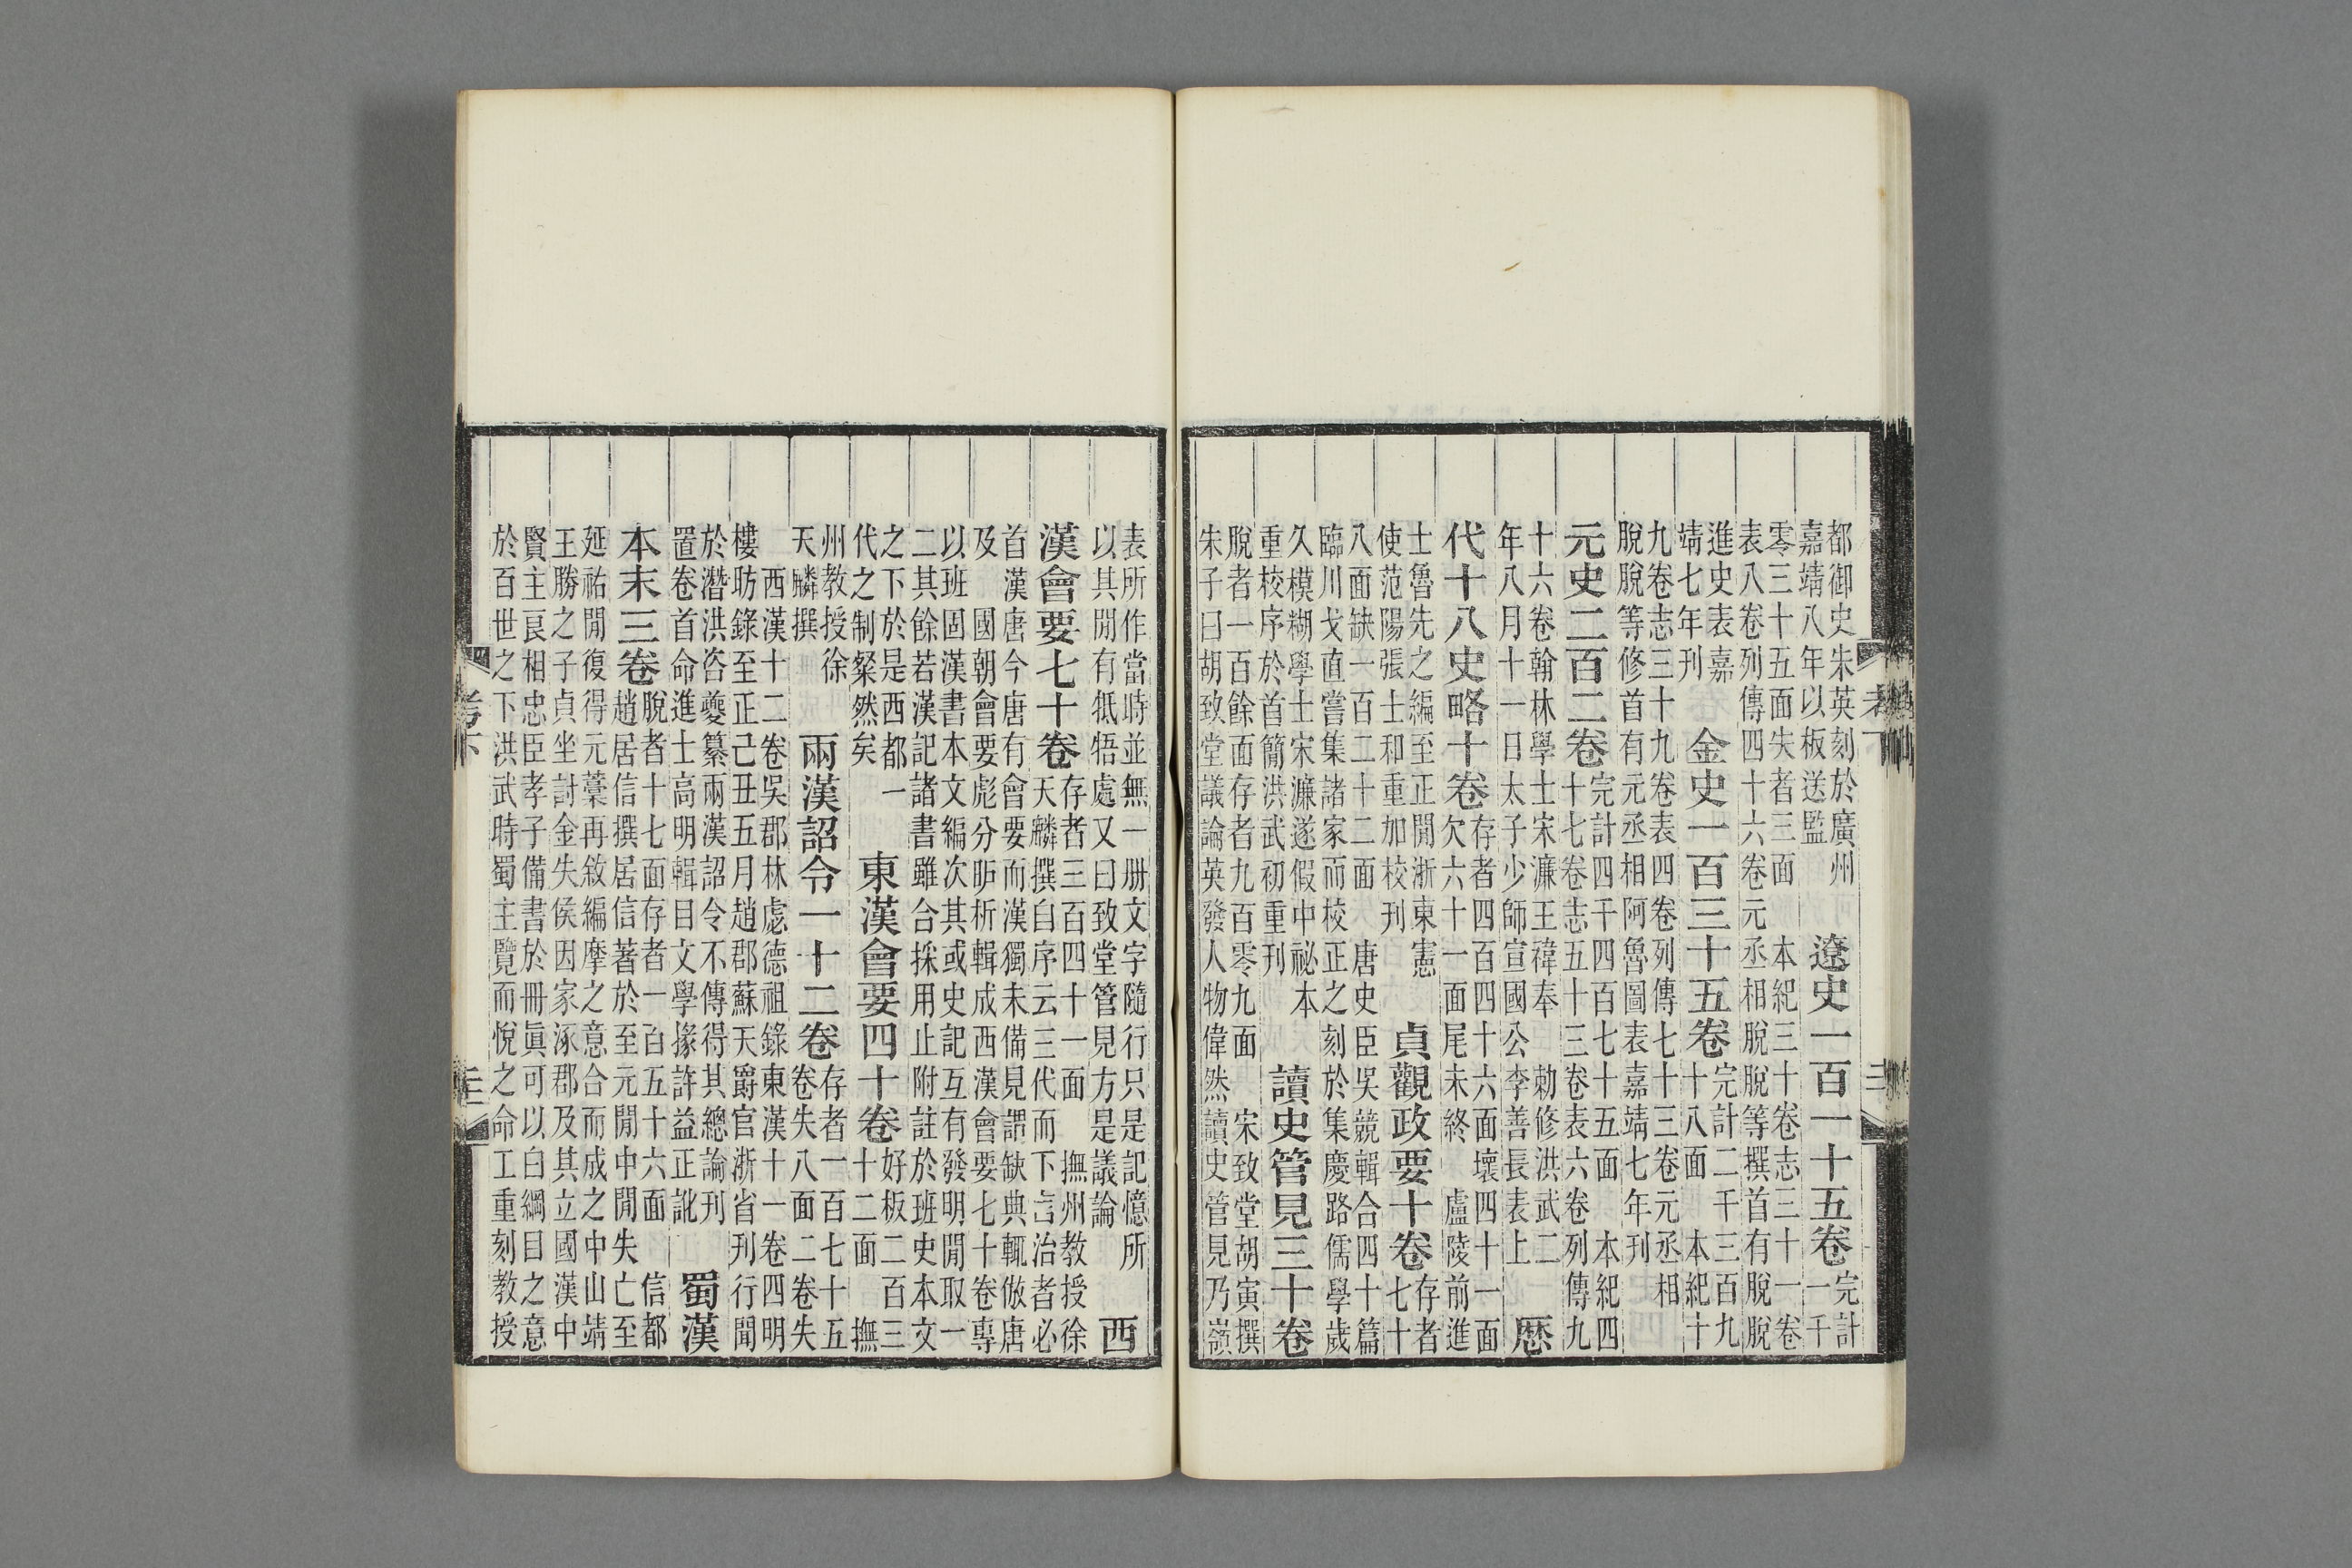 都御史朱英刻於廣州
嘉靖八年以板送監
遼史一百一十五卷
完計一千
零三十五面失者三面
本紀三十卷志三十一卷
表八卷列傳四十六卷元丞相脫脫等撰首有脫脫
進史表嘉
靖七年刊
金史一百三十五卷
完計二千三百九
十八面
本紀十
九卷志三十九卷表四卷列傳七十三卷元丞相
脫脫等修首有元丞相阿魯圖表嘉靖七年刊
元史二百二卷
完計四千四百七十五面
本紀四
十七卷志五十三卷表六卷列傳九
十六卷翰林學士宋濂王禕奉
勅修洪武二
年八月十一日太子少師宣國公李善長表上
歷
代十八史略十卷
存者四百四十六面壞四十一面
欠六十一面尾未終
盧陵前進
士魯先之編至正閒浙東憲
使范陽張士和重加校刊
貞觀政要十卷
存者
七十
八面缺一百二十二面
唐史臣吳兢輯合四十篇
臨川戈直嘗集諸家而校正之刻於集慶路儒學歲
久模糊學士宋濂遂假中祕本
重校序於首簡洪武初重刊
讀史管見三十卷
脫者一百餘面存者九百零九面
宋致堂胡寅撰
朱子曰胡致堂議論英發人物偉然讀史管見乃嶺
表所作當時並無一册文字隨行只是記憶所
以其閒有牴牾處又曰致堂管見方是議論
西
漢會要七十卷
存者三百四十一面
撫州教授徐
天麟撰自序云三代而下言治者必
首漢唐今唐有會要而漢獨未備見謂缺典輒倣唐
及國朝會要彪分昈析輯成西漢會要七十卷專
以班固漢書本文編次其或史記互有發明閒取一
二其餘若漢記諸書雖合採用止附註於班史本文
之下於是西都一
代之制粲然矣
東漢會要四十卷
好板二百三
十二面
撫
州教授徐
天麟撰
兩漢詔令一十二卷
存者一百七十五
卷失八面二卷失
西漢十二卷吳郡林虙德祖錄東漢十一卷四明
樓昉錄至正己丑五月趙郡蘇天爵官浙省刊行聞
於潛洪咨夔纂兩漢詔令不傳得其總論刊
置卷首命進士高明輯目文學掾許益正訛
蜀漢
本末三卷
脫者十七面存者一百五十六面
信都
趙居信撰居信著於至元閒中閒失亡至
延祐閒復得元藁再敘編摩之意合而成之中山靖
王勝之子貞坐討金失侯因家涿郡及其立國漢中
賢主良相忠臣孝子備書於冊眞可以白綱目之意
於百世之下洪武時蜀主覽而悅之命工重刻教授
考下
三